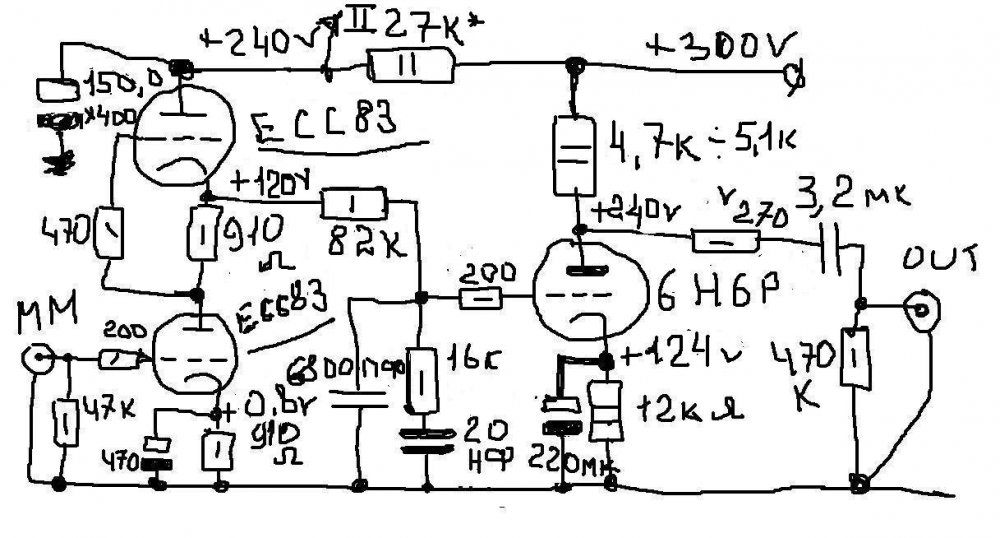 +240v
II
27к*
+300V
150,0
*400
ECC83
4,7к÷5,1к
+120v
82к
470
910
Ω
+240v
270
3,2 мк
OUT
MM
200
ECC83
200
6Н6Р
+124v
6800 пф
16к
470
К
47к
+0,8v
910
Ω
470
20
нф
220мк
12к Ω